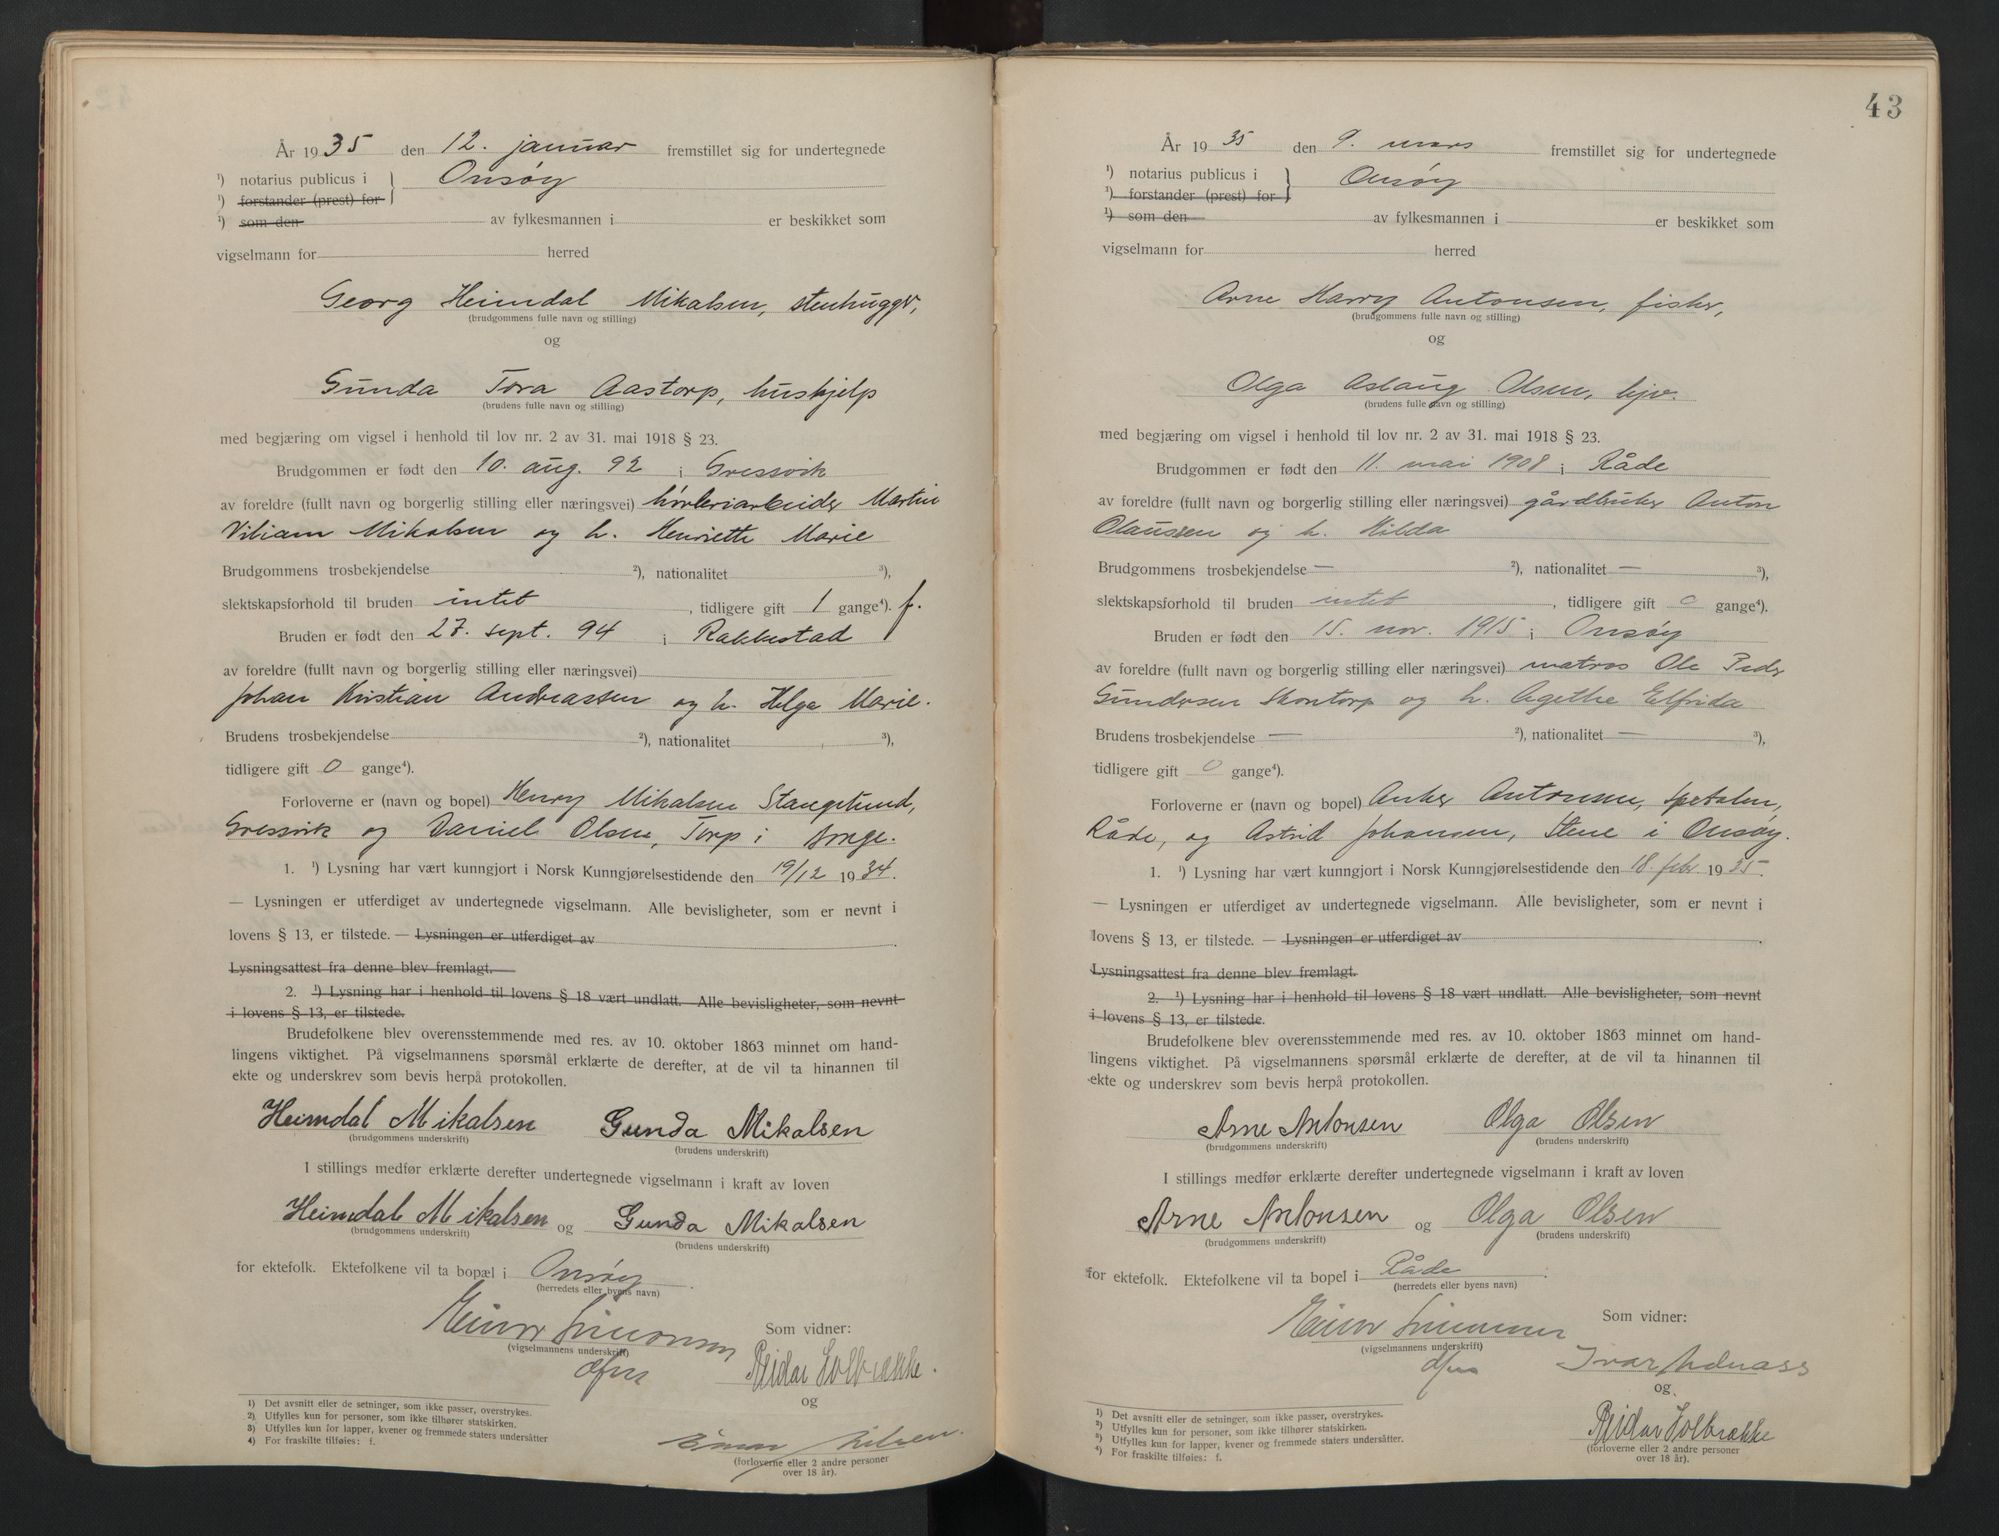 År 1935 den 12. januar fremstillet sig for undertegnede
¹) notarius publicus i } Onsøy
¹) forstander (prest) for
¹) som den av fylkesmannen i er beskikket som
vigselmann for herred
Georg Heimdal Mikalsen, stenhugger,
(brudgommens fulle navn og stilling)
og
Gunda Tora Aastorp, hushjelp
(brudens fulle navn og stilling)
med begjæring om vigsel i henhold til lov nr. 2 av 31. mai 1918 § 23.
Brudgommen er født den 10. aug. 92 i Gressvik
av foreldre (fullt navn og borgerlig stilling eller næringsvei) Martin
Viliam Mikalsen og h. Henriette Marie
Brudgommens trosbekjendelse ²), nationalitet ³),
slektskapsforhold til bruden intet, tidligere gift 1 gange⁴). f.
Bruden er født den 27. sept. 94 i Rakkestad
av foreldre (fullt navn og borgerlig stilling eller næringsvei)
Johan Kristian Andreassen og h. Helga Marie.
Brudens trosbekjendelse ²), nationalitet ³),
tidligere gift 0 gange⁴).
Forloverne er (navn og bopel) Henry Mikalsen Stangelund,
Gressvik og Daniel Olsen, Torp i Borge.
1. ¹) Lysning har vært kunngjort i Norsk Kunngjørelsestidende den 19/12 1934.
— Lysningen er utferdiget av undertegnede vigselmann. Alle bevisligheter, som er nevnt i
lovens § 13, er tilstede. — Lysningen er utferdiget av .
Lysningsattest fra denne blev fremlagt. —
2. ¹) Lysning har i henhold til lovens § 18 vært undlatt. Alle bevisligheter, som nevnt
i lovens § 13, er tilstede.
Brudefolkene blev overensstemmende med res. av 10. oktober 1863 minnet om hand-
lingens viktighet. På vigselmannens spørsmål erklærte de derefter, at de vil ta hinannen til
ekte og underskrev som bevis herpå protokollen.
Heimdal Mikalsen Gunda Mikalsen
(brudgommens underskrift) (brudens underskrift)
I stillings medfør erklærte derefter undertegnede vigselmann i kraft av loven
Heimdal Mikalsen og Gunda Mikalsen
(brudgommens underskrift) (brudens underskrift)
for ektefolk. Ektefolkene vil ta bopæl i Onsøy.
(herredets eller byens navn)
Einar Simonsen Som vidner:
(vigselmannens underskrift)
Reidar Solbrække.
og
(forloverne eller 2 andre personer
over 18 år).
1) Det avsnitt eller de setninger, som ikke passer, overstrykes.
2) Utfylles kun for personer, som ikke tilhører statskirken.
3) Utfylles kun for lapper, kvener og fremmede staters undersåtter
4) For fraskilte tilføies: f.
43
År 1935 den 9. mars fremstillet sig for undertegnede
¹) notarius publicus i } Onsøy
¹) forstander (prest) for
¹) som den av fylkesmannen i er beskikket som
vigselmann for herred
Arne Harry Antonsen, fisker,
(brudgommens fulle navn og stilling)
og
Olga Aslaug Olsen, hjv.
(brudens fulle navn og stilling)
med begjæring om vigsel i henhold til lov nr. 2 av 31. mai 1918 § 23.
Brudgommen er født den 11. mai 1908 i Råde
av foreldre (fullt navn og borgerlig stilling eller næringsvei) gårdbruker Anton
Olaussen og h. Hilda
Brudgommens trosbekjendelse — ²), nationalitet — ³),
slektskapsforhold til bruden intet, tidligere gift 0 gange⁴).
Bruden er født den 15. nov. 1915 i Onsøy
av foreldre (fullt navn og borgerlig stilling eller næringsvei) matros Ole Peder
Gundersen Skontorp og h. Agethe Elfrida
Brudens trosbekjendelse — ²), nationalitet — ³),
tidligere gift 0 gange⁴).
Forloverne er (navn og bopel) Anker Antonsen, Spetalen,
Råde, og Astrid Johansen, Stene i Onsøy.
1. ¹) Lysning har vært kunngjort i Norsk Kunngjørelsestidende den 18. febr. 1935.
— Lysningen er utferdiget av undertegnede vigselmann. Alle bevisligheter, som er nevnt i
lovens § 13, er tilstede. — Lysningen er utferdiget av .
Lysningsattest fra denne blev fremlagt.
2. ¹) Lysning har i henhold til lovens § 18 vært undlatt. Alle bevisligheter, som nevnt
i lovens § 13, er tilstede.
Brudefolkene blev overensstemmende med res. av 10. oktober 1863 minnet om hand-
lingens viktighet. På vigselmannens spørsmål erklærte de derefter, at de vil ta hinannen til
ekte og underskrev som bevis herpå protokollen.
Arne Antonsen Olga Olsen
(brudgommens underskrift) (brudens underskrift)
I stillings medfør erklærte derefter undertegnede vigselmann i kraft av loven
Arne Antonsen og Olga Olsen
(brudgommens underskrift) (brudens underskrift)
for ektefolk. Ektefolkene vil ta bopel i Råde.
(herredets eller byens navn)
Einar Simonsen Som vidner:
(vigselmannens underskrift)
Ivar
og
Reidar Solbrække
(forloverne eller 2 andre personer
over 18 år).
1) Det avsnitt eller de setninger, som ikke passer, overstrykes.
2) Utfylles kun for personer, som ikke tilhører statskirken.
3) Utfylles kun for lapper, kvener og fremmede staters undersåtter.
4) For fraskilte tilføies: f.